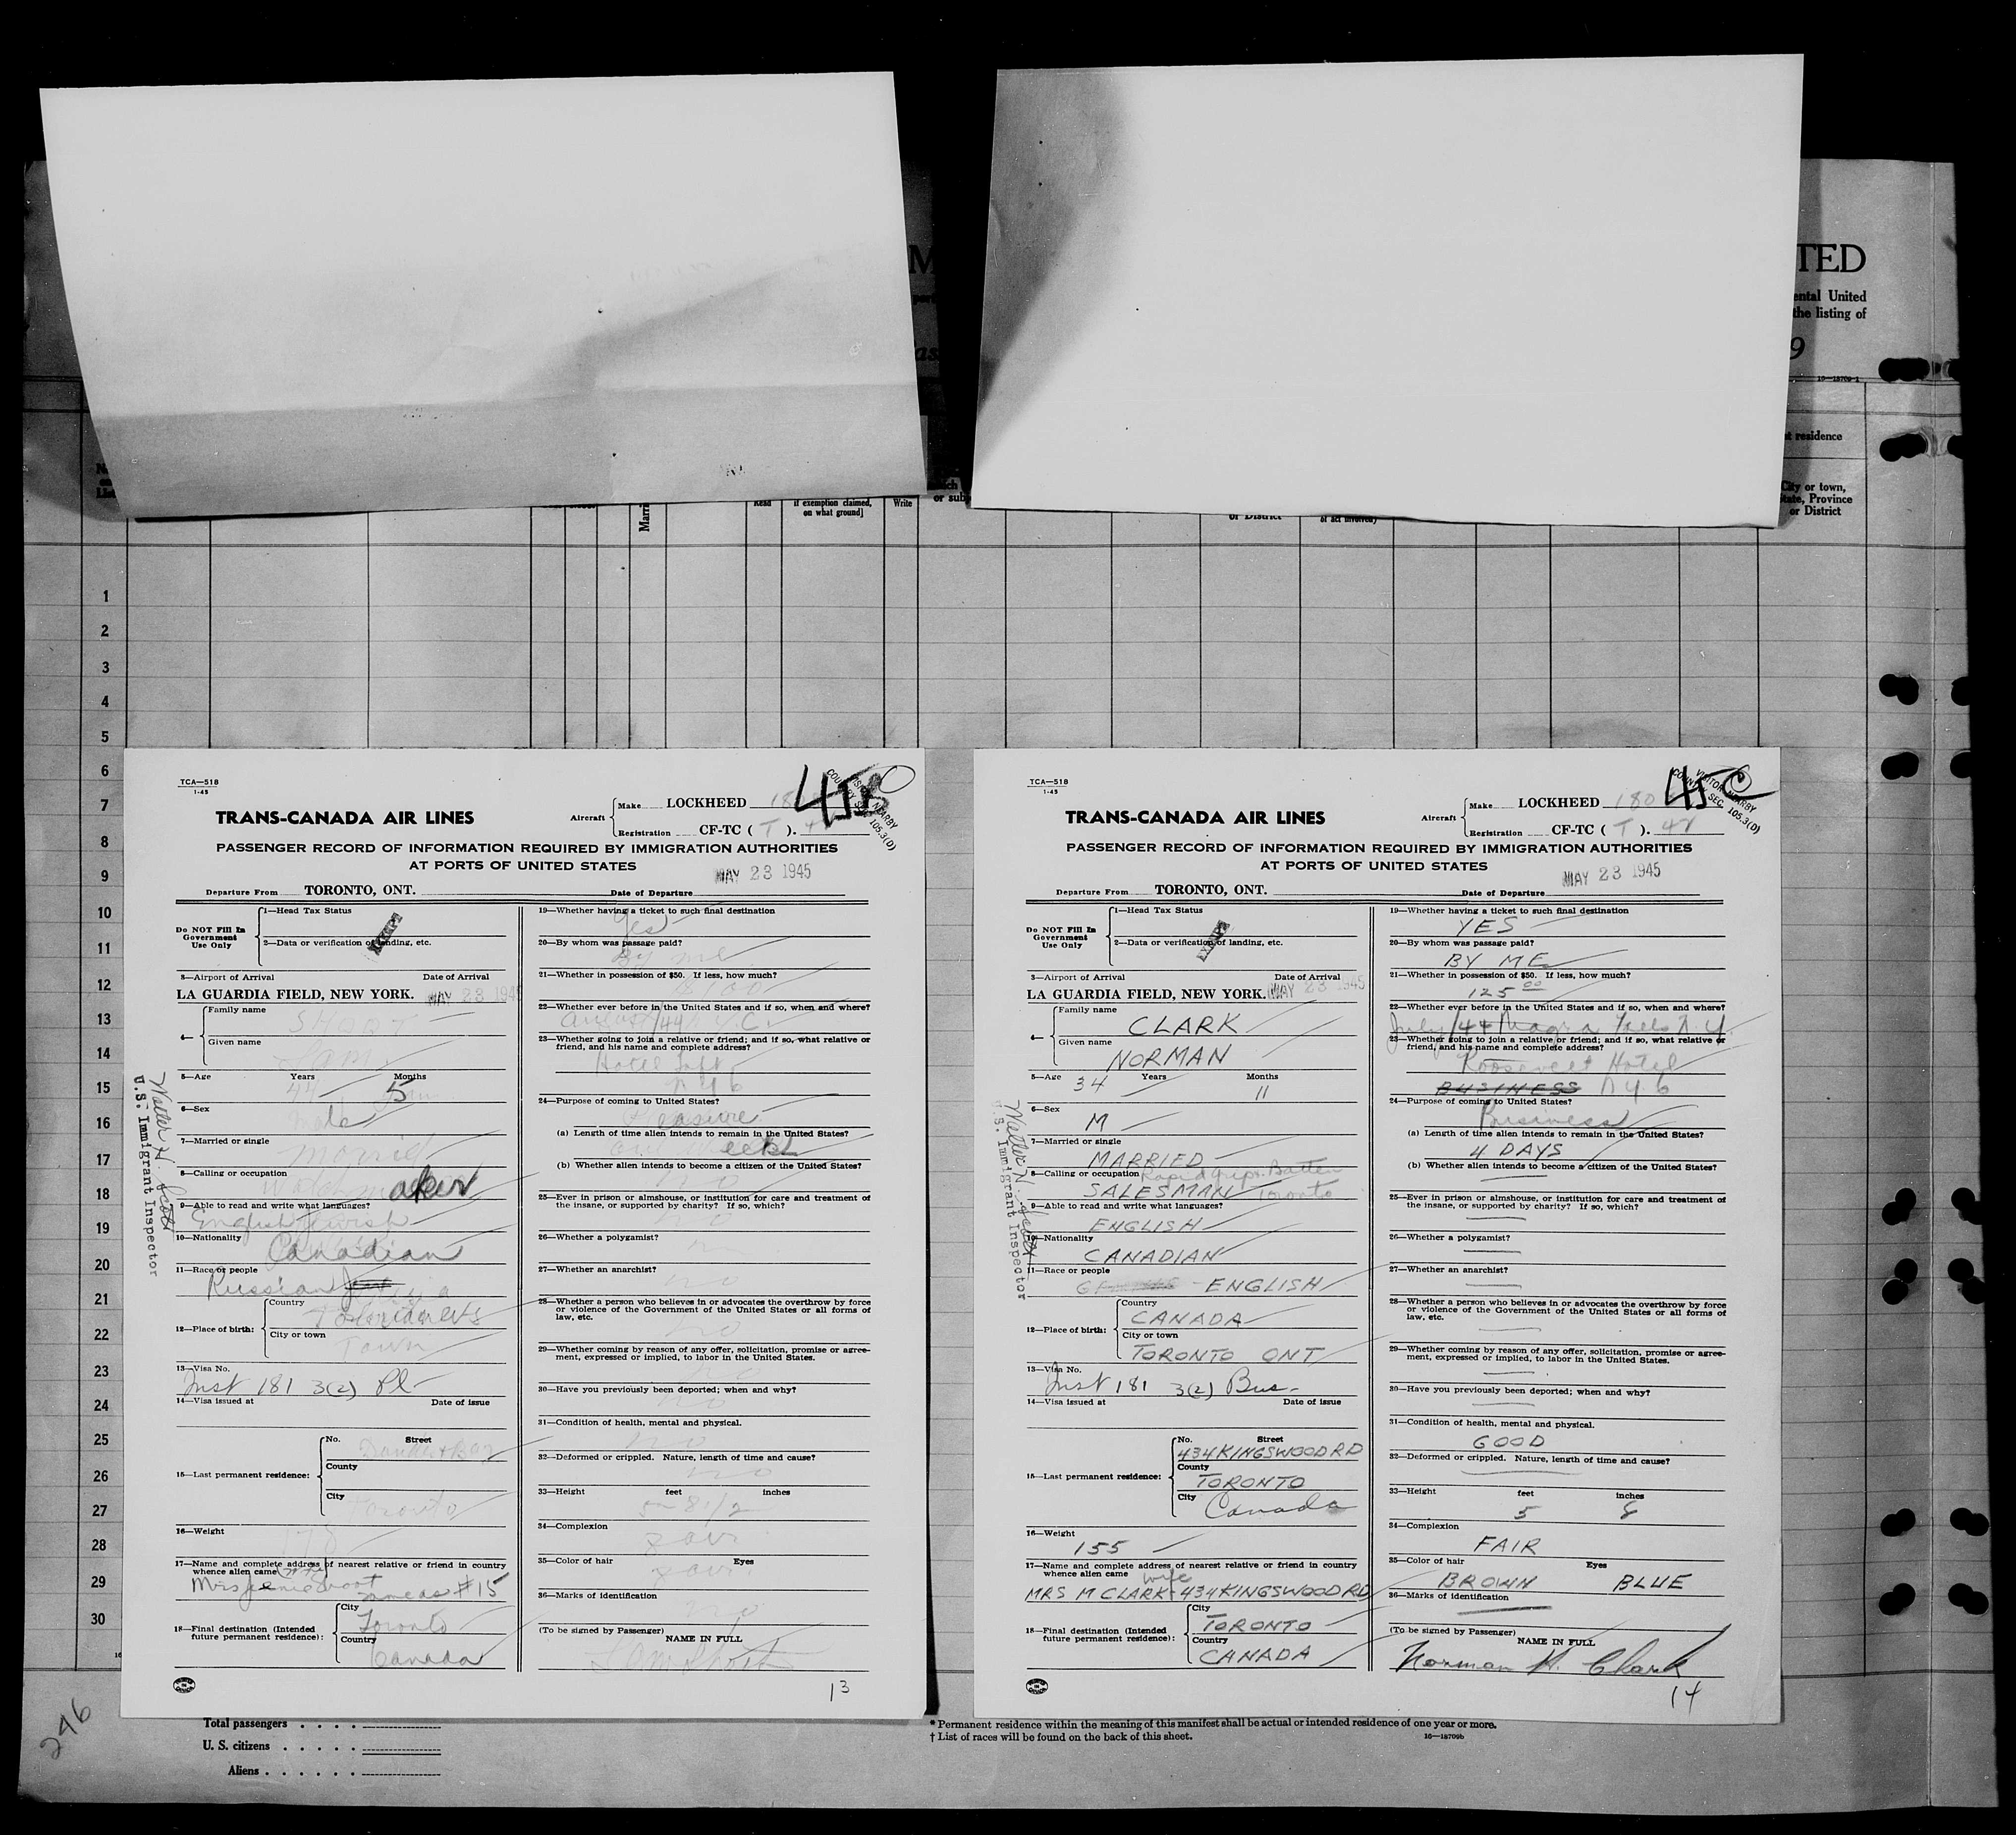 M
TED
ental United
the listing of
as
9
16—18709-1
t residence
City or town,
State, Province
or District
Read
if exemption claimed,
on what ground]
Write
or sub
or District
of act involved)
1
2
3
4
5
6
7
8
9
10
11
12
13
14
15
16
17
18
19
20
21
22
23
24
25
26
27
28
29
30
TCA—518
1-45
45
TRANS-CANADA AIR LINES
Aircraft
Make LOCKHEED
Registration CF-TC ( T ).
VISITOR NEARBY
COUNTRY SEC. 105.3(D)
PASSENGER RECORD OF INFORMATION REQUIRED BY IMMIGRATION AUTHORITIES
AT PORTS OF UNITED STATES
MAY 23 1945
Departure From TORONTO, ONT. Date of Departure
Do NOT Fill In
Government
Use Only
1—Head Tax Status
2—Data or verification of landing, etc.
3—Airport of Arrival Date of Arrival
LA GUARDIA FIELD, NEW YORK. MAY 23 1945
4—
Family name
SHORT
Given name
Sam
5—Age Years Months
44 5
6—Sex
male
7—Married or single
8—Calling or occupation
9—Able to read and write what languages?
English Jewish
10—Nationality
Canadian
11—Race or people
Russian
12—Place of birth:
Country
City or town
Town
13—Visa No.
Inst 181 3(2) Pl-
14—Visa issued at Date of issue
15—Last permanent residence:
No. Street
County
City
Toronto
16—Weight
178
17—Name and complete address of nearest relative or friend in country
whence alien came
Mrs Jennie Short same as #15
18—Final destination (Intended
future permanent residence):
City
Toronto
Country
Canada
Walter H.
U.S. Immigrant Inspector
19—Whether having a ticket to such final destination
Yes
20—By whom was passage paid?
By me
21—Whether in possession of $50. If less, how much?
$100
22—Whether ever before in the United States and if so, when and where?
August/44 N.Y.C.
23—Whether going to join a relative or friend; and if so, what relative or
friend, and his name and complete address?
Hotel Taft
N Y C
24—Purpose of coming to United States?
Pleasure
(a) Length of time alien intends to remain in the United States?
(b) Whether alien intends to become a citizen of the United States?
no
25—Ever in prison or almshouse, or institution for care and treatment of
the insane, or supported by charity? If so, which?
no
26—Whether a polygamist?
no
27—Whether an anarchist?
no
28—Whether a person who believes in or advocates the overthrow by force
or violence of the Government of the United States or all forms of
law, etc.
no
29—Whether coming by reason of any offer, solicitation, promise or agree-
ment, expressed or implied, to labor in the United States.
no
30—Have you previously been deported; when and why?
no
31—Condition of health, mental and physical.
no
32—Deformed or crippled. Nature, length of time and cause?
no
33—Height feet inches
5 - 8 1/2
34—Complexion
35—Color of hair Eyes
36—Marks of identification
no
(To be signed by Passenger)
NAME IN FULL
Sam Short
13
TCA—518
1-45
45
TRANS-CANADA AIR LINES
Aircraft
Make LOCKHEED 180
Registration CF-TC ( T ). 42
VISITOR NEARBY
COUNTRY SEC. 105.3(D)
PASSENGER RECORD OF INFORMATION REQUIRED BY IMMIGRATION AUTHORITIES
AT PORTS OF UNITED STATES
MAY 23 1945
Departure From TORONTO, ONT. Date of Departure
Do NOT Fill In
Government
Use Only
1—Head Tax Status
2—Data or verification of landing, etc.
3—Airport of Arrival Date of Arrival
LA GUARDIA FIELD, NEW YORK. MAY 23 1945
4—
Family name
CLARK
Given name
NORMAN
5—Age Years Months
34 11
6—Sex
M
7—Married or single
MARRIED
8—Calling or occupation Rapid Grip & Batten
SALESMAN Toronto
9—Able to read and write what languages?
ENGLISH
10—Nationality
CANADIAN
11—Race or people
ENGLISH
12—Place of birth:
Country
CANADA
City or town
TORONTO ONT
13—Visa No.
Inst 181 3(2) Bus-
14—Visa issued at Date of issue
15—Last permanent residence:
No. Street
434 KINGSWOOD RD
County
TORONTO
City
Canada
16—Weight
155
17—Name and complete address of nearest relative or friend in country
whence alien came wife
MRS M CLARK - 434 KINGSWOOD RD
18—Final destination (Intended
future permanent residence):
City
TORONTO
Country
CANADA
Walter H.
U.S. Immigrant Inspector
19—Whether having a ticket to such final destination
YES
20—By whom was passage paid?
BY ME
21—Whether in possession of $50. If less, how much?
125 00
22—Whether ever before in the United States and if so, when and where?
July/44 Niagra Falls N.Y.
23—Whether going to join a relative or friend; and if so, what relative or
friend, and his name and complete address?
Roosevelt Hotel
BUSINESS N Y C
24—Purpose of coming to United States?
Business
(a) Length of time alien intends to remain in the United States?
4 DAYS
(b) Whether alien intends to become a citizen of the United States?
25—Ever in prison or almshouse, or institution for care and treatment of
the insane, or supported by charity? If so, which?
26—Whether a polygamist?
27—Whether an anarchist?
28—Whether a person who believes in or advocates the overthrow by force
or violence of the Government of the United States or all forms of
law, etc.
29—Whether coming by reason of any offer, solicitation, promise or agree-
ment, expressed or implied, to labor in the United States.
30—Have you previously been deported; when and why?
31—Condition of health, mental and physical.
GOOD
32—Deformed or crippled. Nature, length of time and cause?
33—Height feet inches
5 8
34—Complexion
FAIR
35—Color of hair Eyes
BROWN BLUE
36—Marks of identification
(To be signed by Passenger)
NAME IN FULL
Norman H. Clark
14
246
Total passengers
U. S. citizens
Aliens
* Permanent residence within the meaning of this manifest shall be actual or intended residence of one year or more.
† List of races will be found on the back of this sheet.
16—18709b